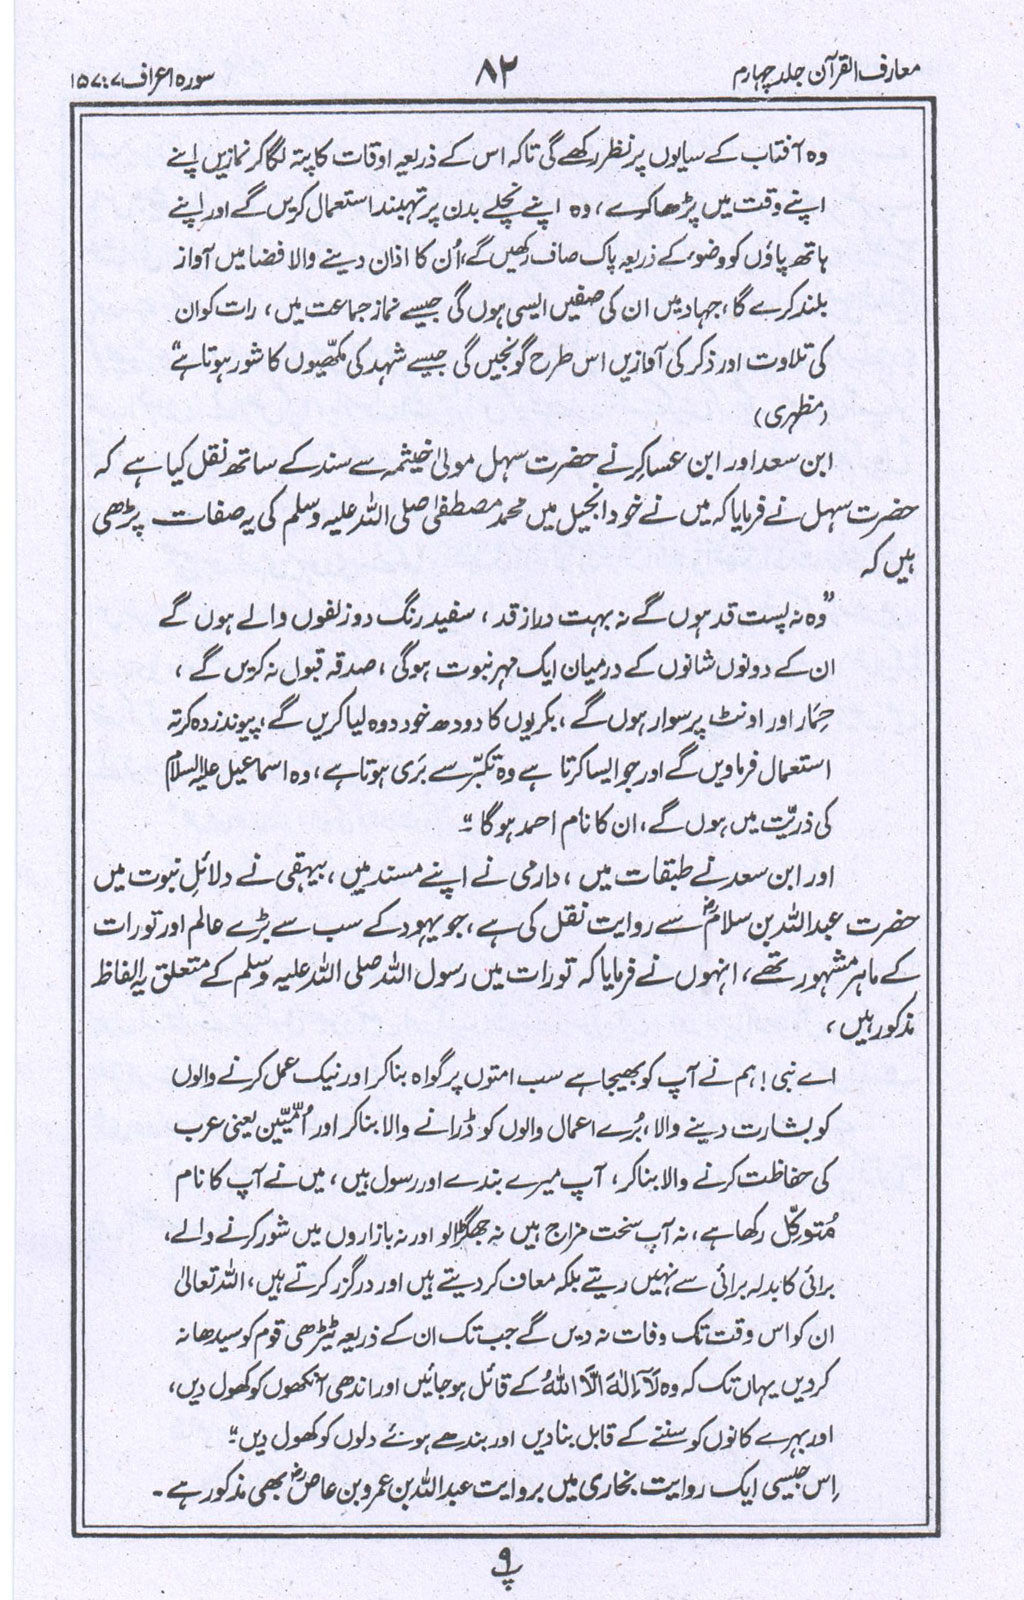 معارف القرآن جلد چہارم
۸۲
سورہ اعراف ۷ : ۱۵۷
وہ آفتاب کے سایوں پر نظر رکھے گی تاکہ اس کے ذریعہ اوقات کا پتہ لگا کر نمازیں اپنے
اپنے وقت میں پڑھا کرے، وہ اپنے نچلے بدن پر تہبند استعمال کریں گے اور اپنے
ہاتھ پاؤں کو وضو کے ذریعہ پاک صاف رکھیں گے، اُن کا اذان دینے والا فضا میں آواز
بلند کرے گا، جہاد میں ان کی صفیں ایسی ہوں گی جیسے نماز جماعت میں، رات کو ان
کی تلاوت اور ذکر کی آوازیں اس طرح گونجیں گی جیسے شہد کی مکھیوں کا شور ہوتا ہے"
(مظہری)
ابن سعد اور ابن عساکر نے حضرت سہل مولیٰ خیثمہ سے سند کے ساتھ نقل کیا ہے کہ
حضرت سہل نے فرمایا کہ میں نے خود انجیل میں محمد مصطفی صلی اللہ علیہ وسلم کی یہ صفات پڑھی
ہیں کہ
"وہ نہ پست قد ہوں گے نہ بہت دراز قد، سفید رنگ دو زلفوں والے ہوں گے
ان کے دونوں شانوں کے درمیان ایک مہر نبوت ہوگی، صدقہ قبول نہ کریں گے،
حِمَار اور اونٹ پر سوار ہوں گے، بکریوں کا دودھ خود دوہ لیا کریں گے، پیوند زدہ کرتہ
استعمال فرماویں گے اور جو ایسا کرتا ہے وہ تکبّر سے بَری ہوتا ہے، وہ اسماعیل علیہ السلام
کی ذریّت میں ہوں گے، ان کا نام احمد ہوگا"۔
اور ابن سعد نے طبقات میں، دارمی نے اپنے مسند میں، بیہقی نے دلائل نبوت میں
حضرت عبد اللہ بن سلامؓ سے روایت نقل کی ہے، جو یہود کے سب سے بڑے عالم اور تورات
کے ماہر مشہور تھے، انہوں نے فرمایا کہ تورات میں رسول اللہ صلی اللہ علیہ وسلم کے متعلق یہ الفاظ
مذکور ہیں،
اے نبی! ہم نے آپ کو بھیجا ہے سب امتوں پر گواہ بنا کر اور نیک عمل کرنے والوں
کو بشارت دینے والا، بُرے اعمال والوں کو ڈرانے والا بنا کر اور اُمّیّین یعنی عرب
کی حفاظت کرنے والا بنا کر، آپ میرے بندے اور رسول ہیں، میں نے آپ کا نام
مُتوکِّل رکھا ہے، نہ آپ سخت مزاج ہیں نہ جھگڑالو اور نہ بازاروں میں شور کرنے والے،
برائی کا بدلہ برائی سے نہیں دیتے بلکہ معاف کر دیتے ہیں اور درگزر کرتے ہیں، اللہ تعالیٰ
ان کو اس وقت تک وفات نہ دیں گے جب تک ان کے ذریعہ ٹیڑھی قوم کو سیدھا نہ
کر دیں یہاں تک کہ وہ لَآ اِلٰہَ اِلَّا اللہُ کے قائل ہو جائیں اور اندھی آنکھوں کو کھول دیں،
اور بہرے کانوں کو سننے کے قابل بنا دیں اور بندھے ہوئے دلوں کو کھول دیں"۔
اِس جیسی ایک روایت بخاری میں بروایت عبد اللہ بن عمرو بن عاصؓ بھی مذکور ہے۔